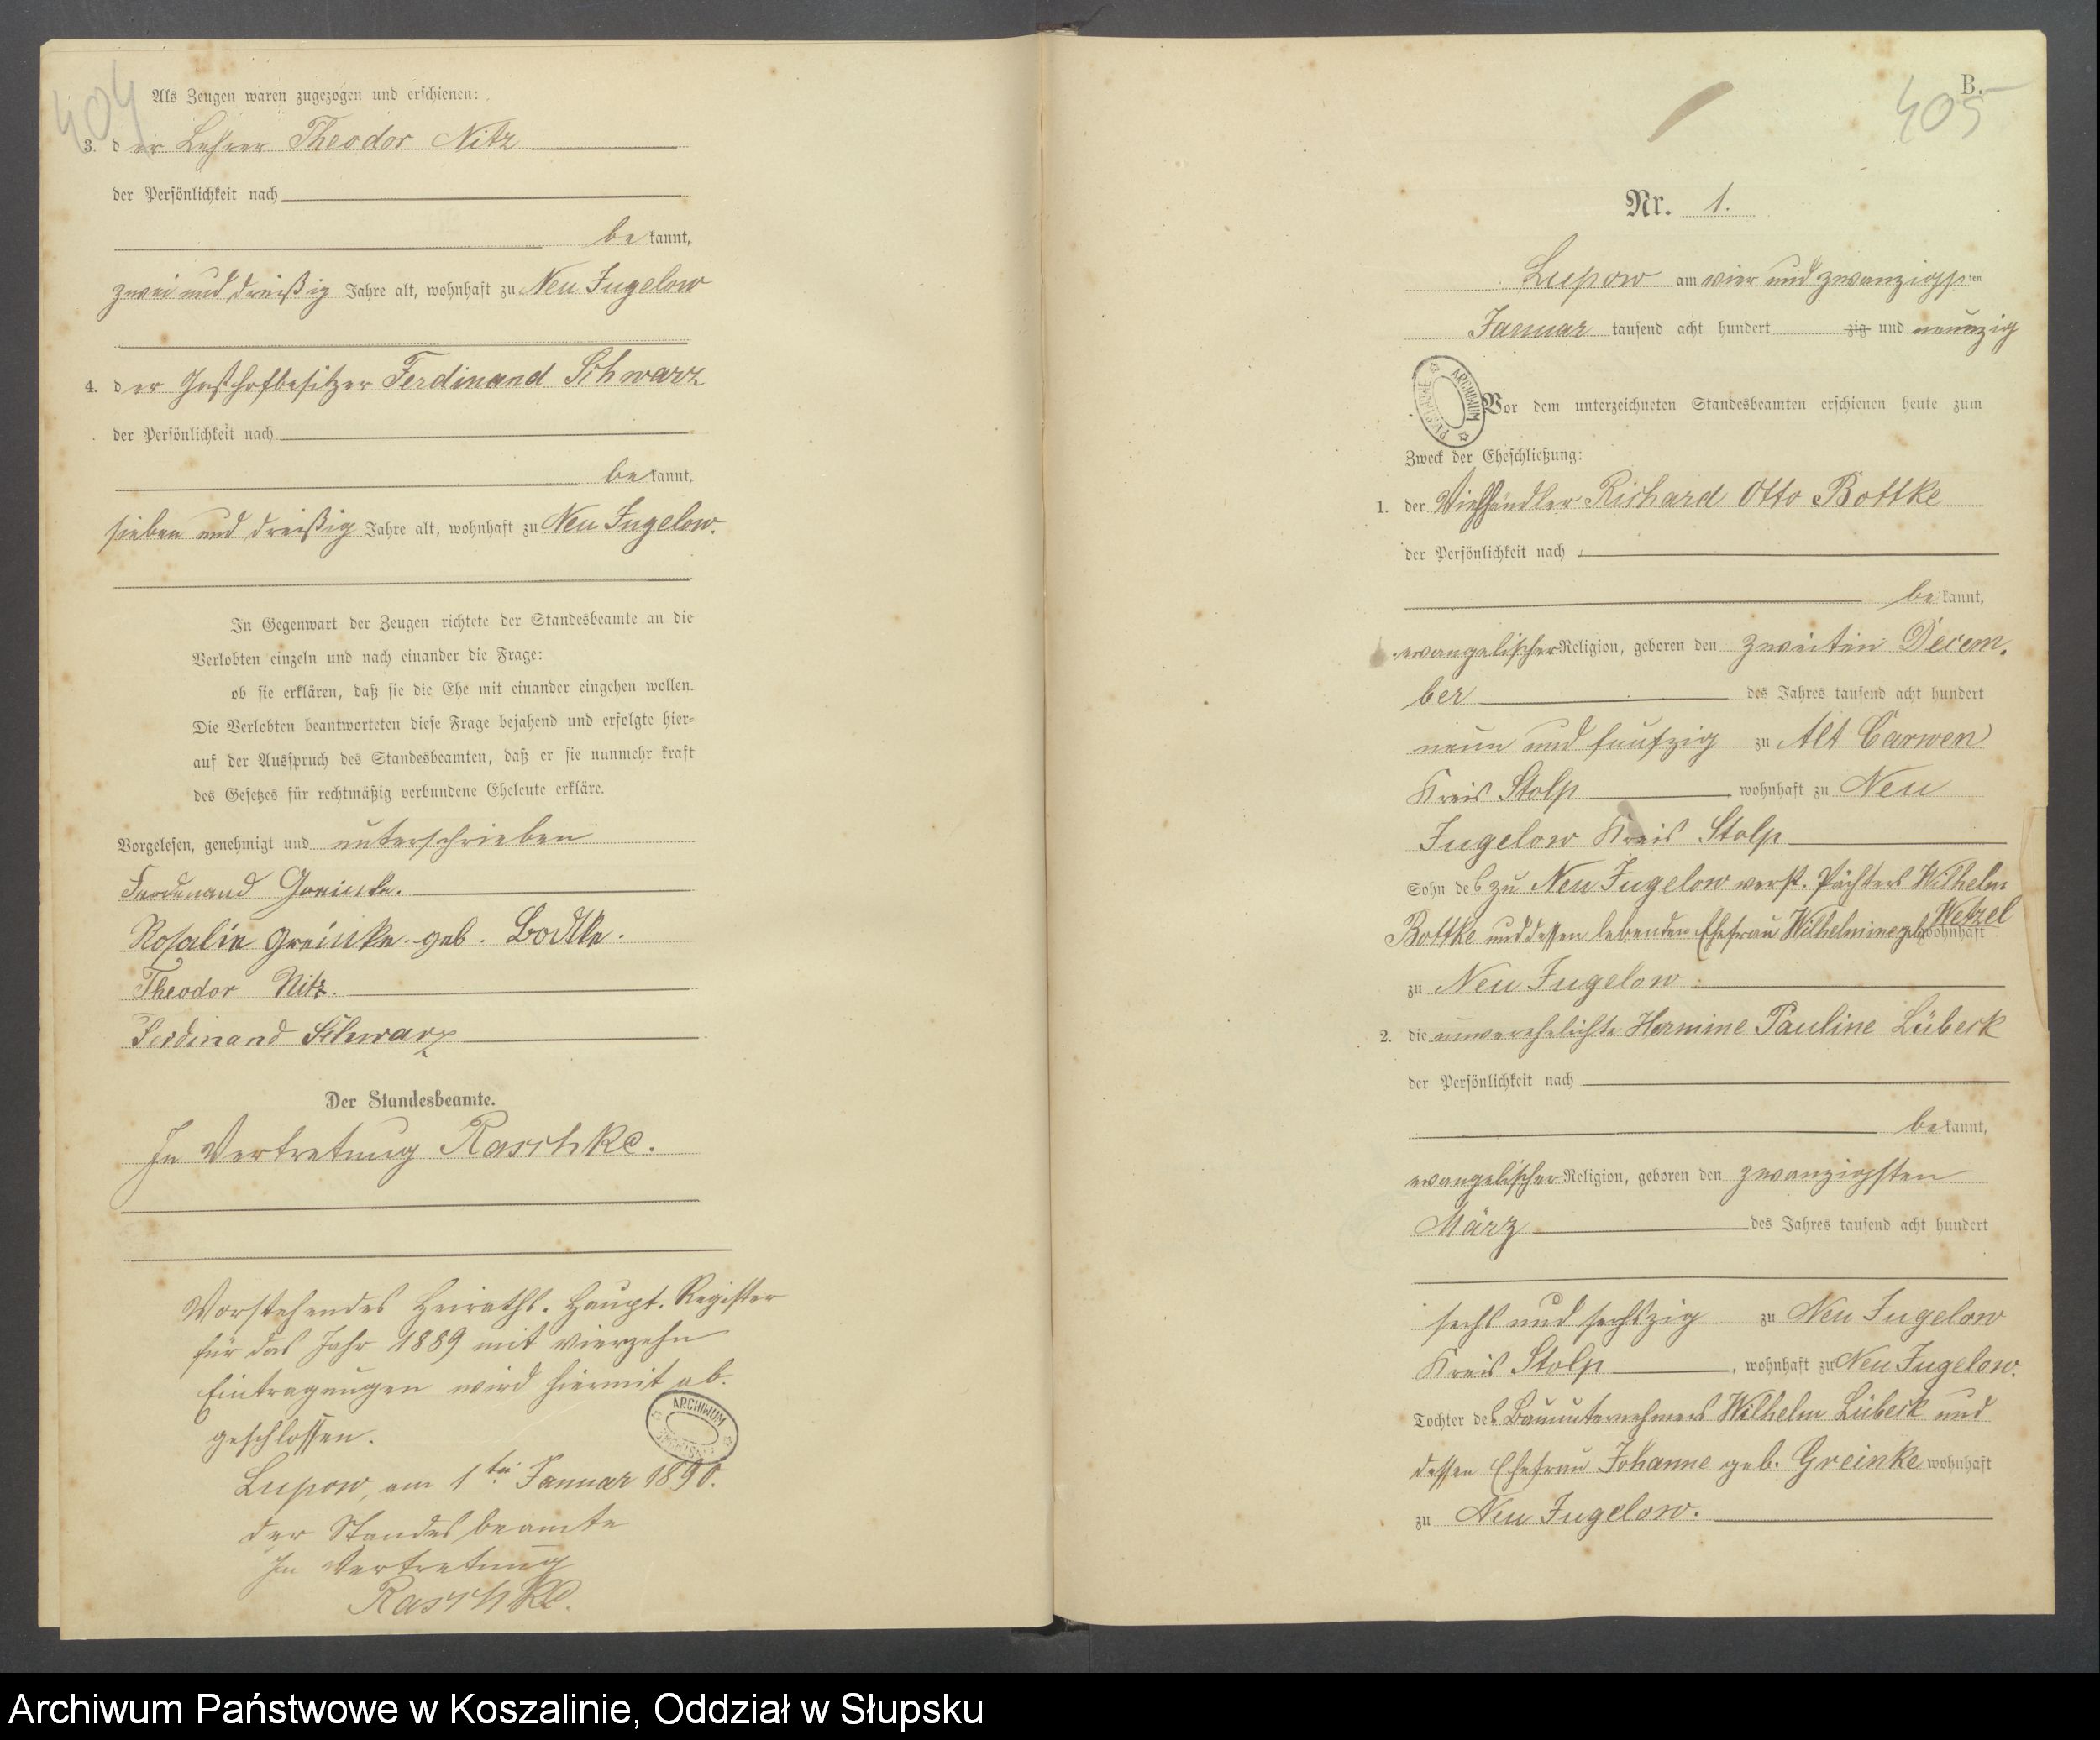 404
Als Zeugen waren zugezogen und erschienen:
3. der Lehrer Theodor Nitz
der Persönlichkeit nach
bekannt,
zwei und dreißig Jahre alt, wohnhaft zu Neu Jugelow
4. der Gasthofbesitzer Ferdinand Schwarz
der Persönlichkeit nach
bekannt,
sieben und dreißig Jahre alt, wohnhaft zu Neu Jugelow.
In Gegenwart der Zeugen richtete der Standesbeamte an die
Verlobten einzeln und nach einander die Frage:
ob sie erklären, daß sie die Ehe mit einander eingehen wollen.
Die Verlobten beantworteten diese Frage bejahend und erfolgte hier-
auf der Ausspruch des Standesbeamten, daß er sie nunmehr kraft
des Gesetzes für rechtmäßig verbundene Eheleute erkläre.
Vorgelesen, genehmigt und unterschrieben
Ferdinand Greinke.
Rosalie Greinke geb. Bottke.
Theodor Nitz.
Ferdinand Schwarz
Der Standesbeamte.
In Vertretung Raschke.
Vorstehendes Heiraths-Haupt-Register
für das Jahr 1889 mit vierzehn
Eintragungen wird hiermit ab-
geschlossen.
ARCHIWUM
Lupow, am 1ten Januar 1890.
der Standesbeamte
In Vertretung
Raschke.
B.
405
Nr. 1.
Lupow am vier und zwanzigsten
Januar tausend acht hundert zig und neunzig
ARCHIWUM
Vor dem unterzeichneten Standesbeamten erschienen heute zum
Zweck der Eheschließung:
1. der Viehhändler Richard Otto Bottke
der Persönlichkeit nach
bekannt,
evangelischer Religion, geboren den zweiten Decem-
ber des Jahres tausend acht hundert
neun und fünfzig zu Alt Carwen
Kreis Stolp wohnhaft zu Neu
Jugelow Kreis Stolp
Sohn des zu Neu Jugelow verst. Pächters Wilhelm
Bottke und dessen lebenden Ehefrau Wilhelmine geb. Wetzel wohnhaft
zu Neu Jugelow.
2. die unverehelichte Hermine Pauline Lübeck
der Persönlichkeit nach
bekannt,
evangelischer Religion, geboren den zwanzigsten
März des Jahres tausend acht hundert
sechs und sechszig zu Neu Jugelow
Kreis Stolp, wohnhaft zu Neu Jugelow.
Tochter des Bauunternehmers Wilhelm Lübeck und
dessen Ehefrau Johanne geb. Greinke wohnhaft
zu Neu Jugelow.
Archiwum Państwowe w Koszalinie, Oddział w Słupsku